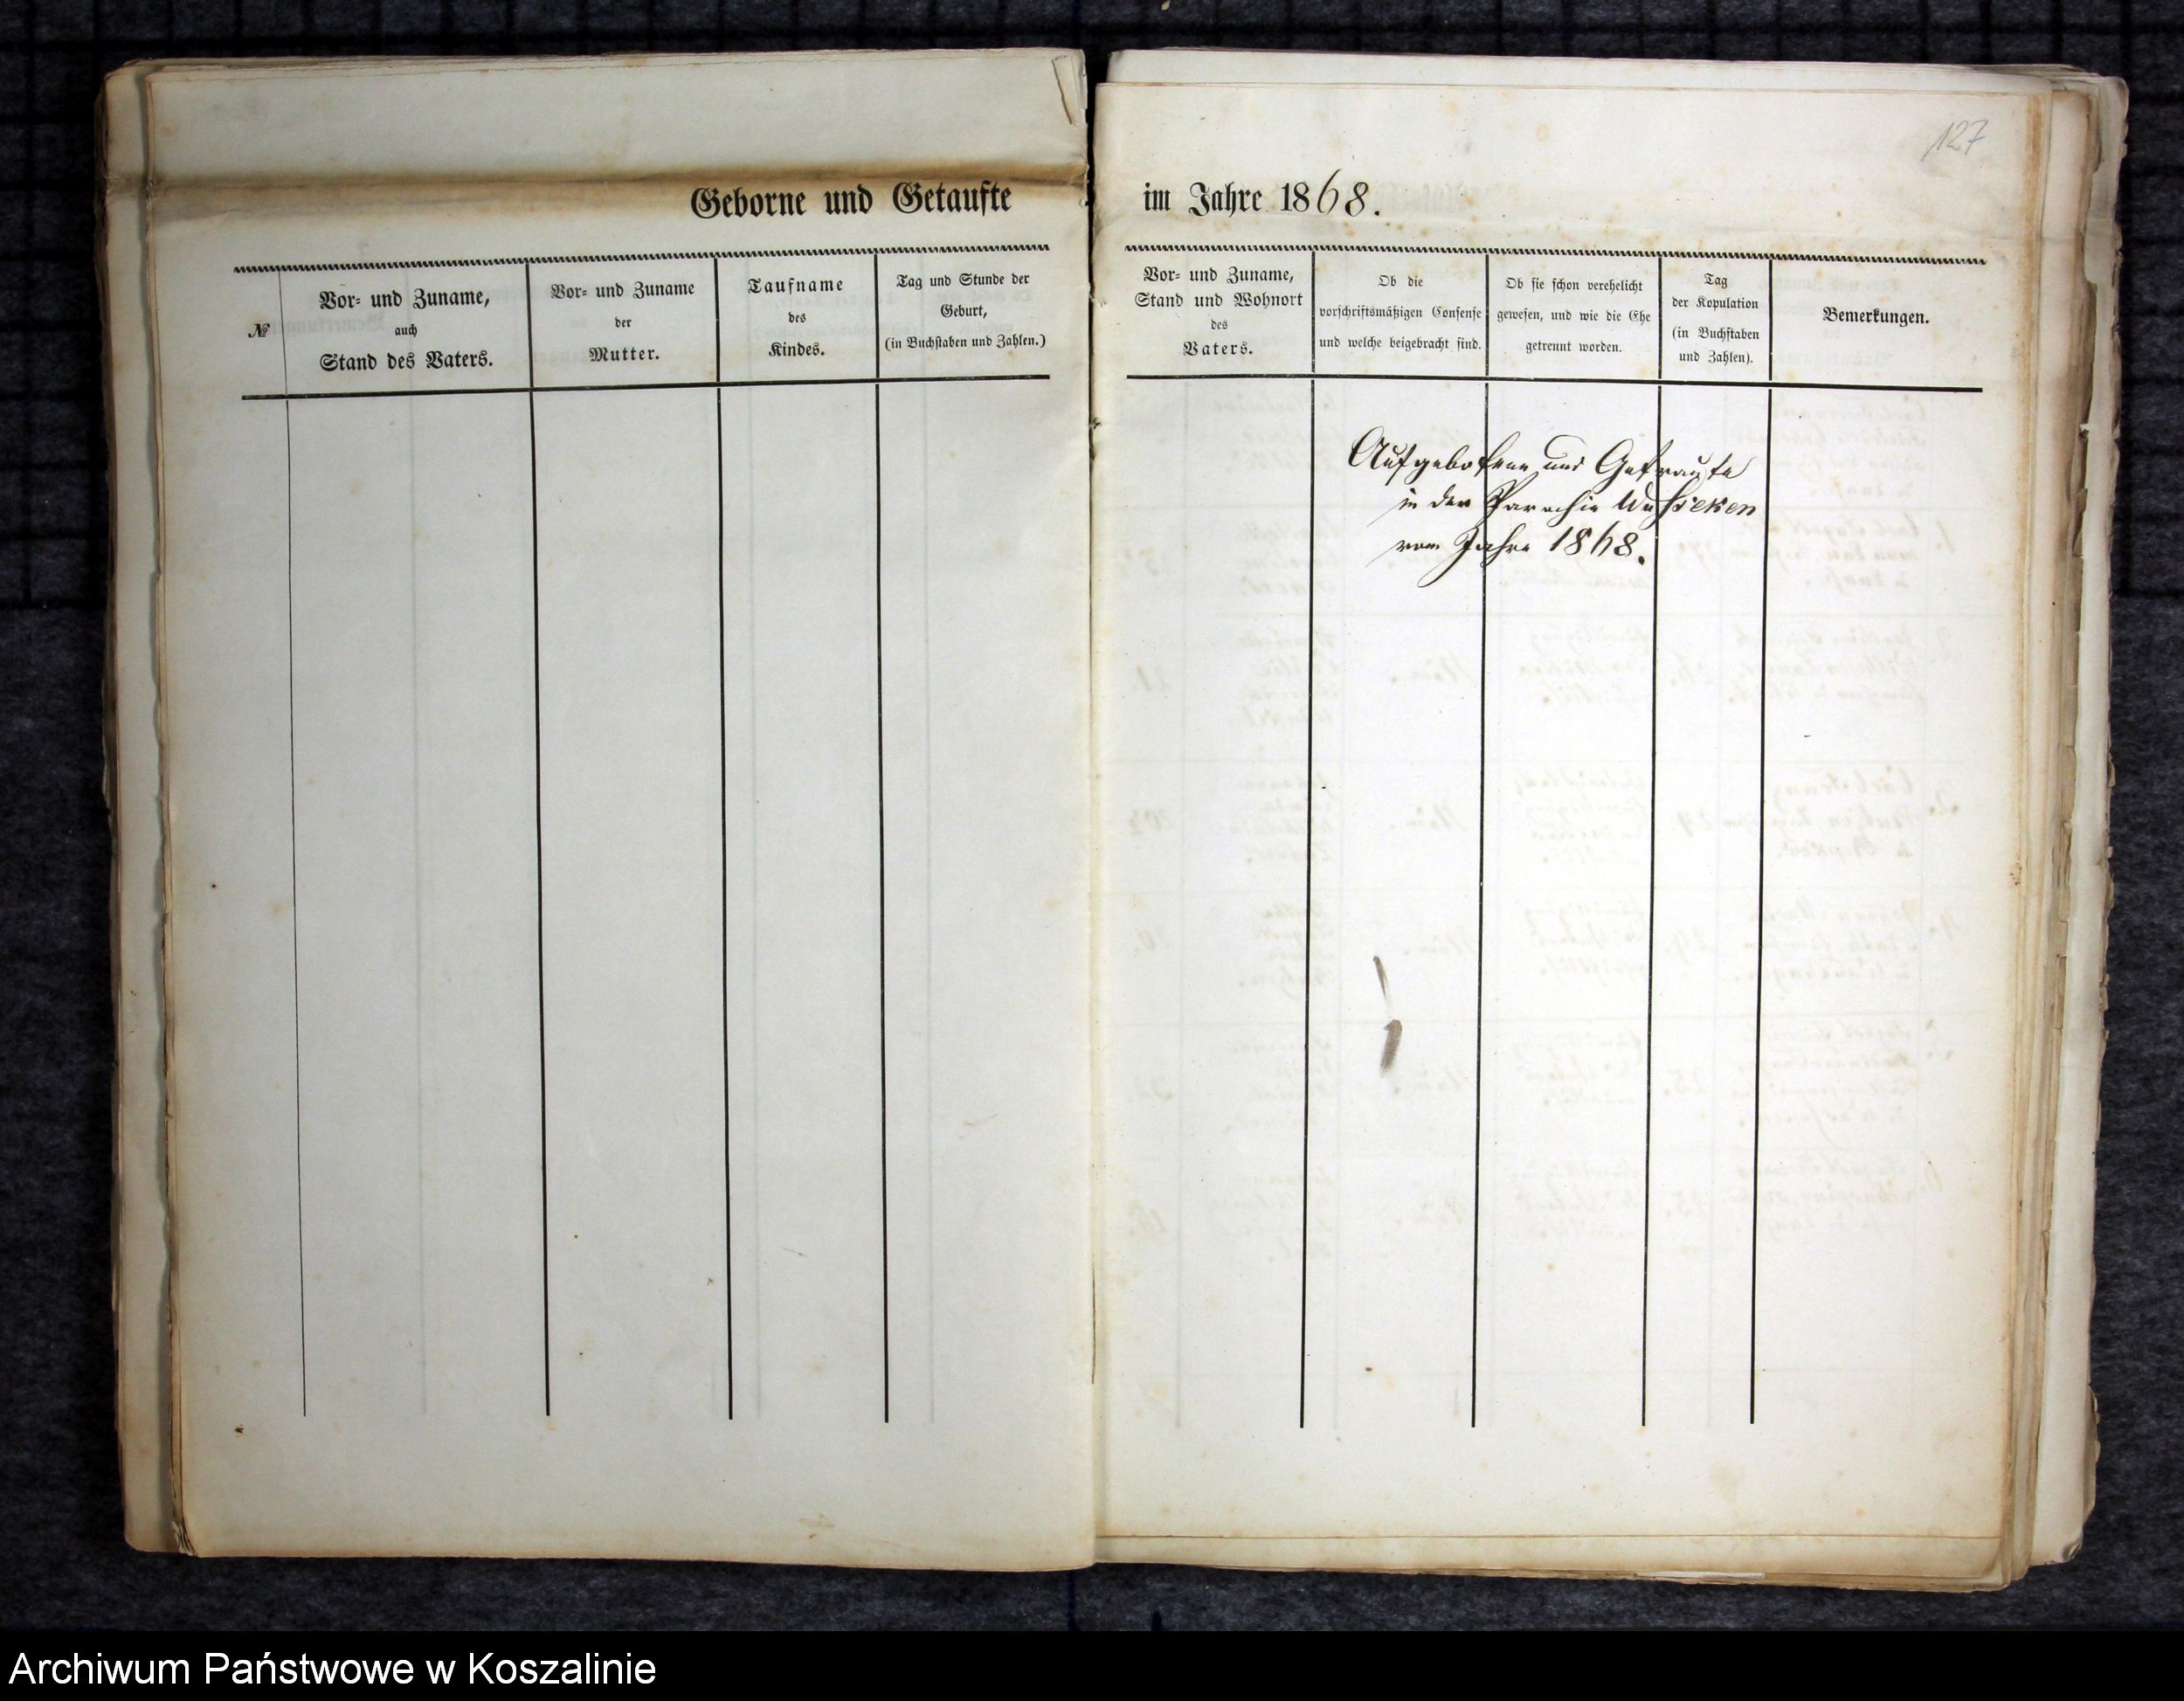 127
Geborne und Getaufte
№
Vor- und Zuname,
auch
Stand des Vaters.
Vor- und Zuname
der
Mutter.
Taufname
des
Kindes.
Tag und Stunde der
Geburt,
(in Buchstaben und Zahlen.)
im Jahre 1868.
Vor- und Zuname,
Stand und Wohnort
des
Vaters.
Ob die
vorschriftsmäßigen Consense
und welche beigebracht sind.
Ob sie schon verehelicht
gewesen, und wie die Ehe
getrennt worden.
Tag
der Kopulation
(in Buchstaben
und Zahlen).
Bemerkungen.
Aufgebotene und Getraute
in der Parochie Wusseken
vom Jahre 1868.
Archiwum Państwowe w Koszalinie